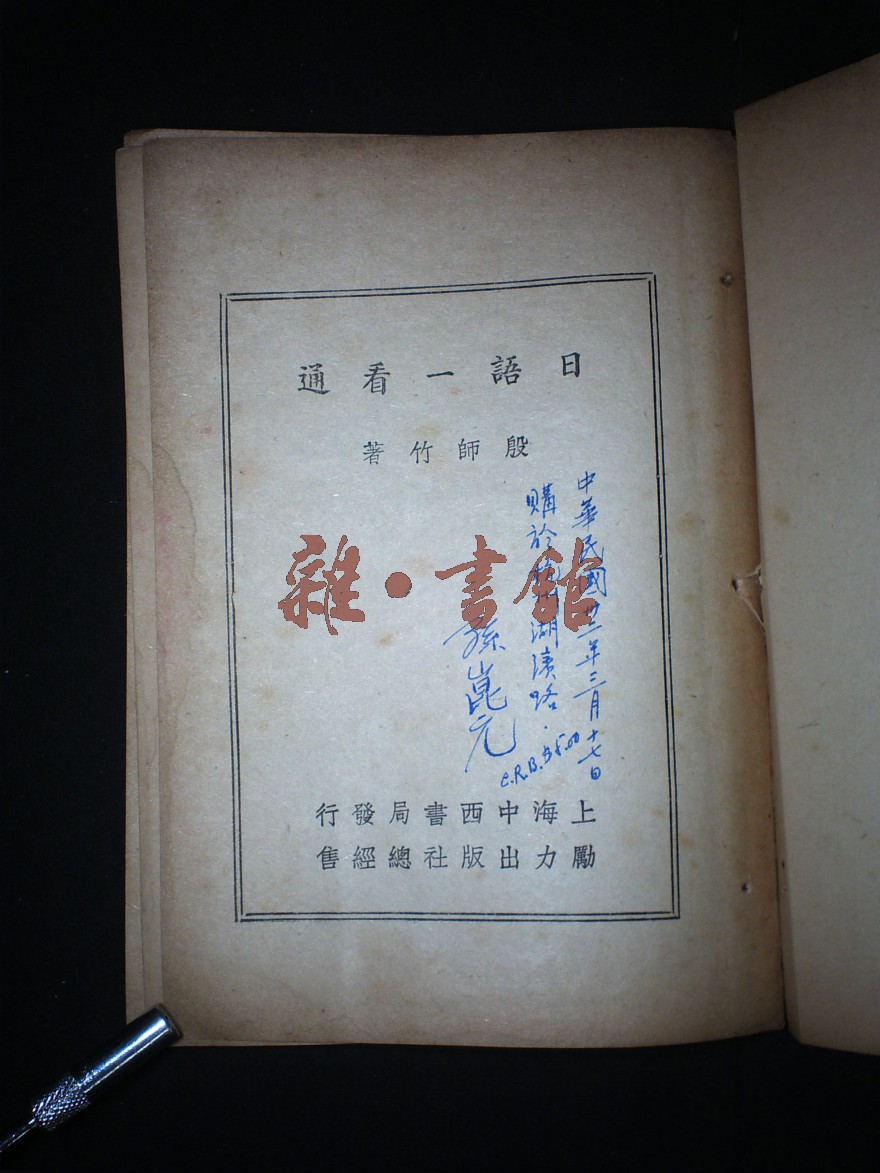 日語一看通
殷師竹著
中華民國卅二年三月十七日
購於湖濱路.
C.R.B.$5.00
孫崑元
雜·書館
上海中西書局發行
勵力出版社總經售